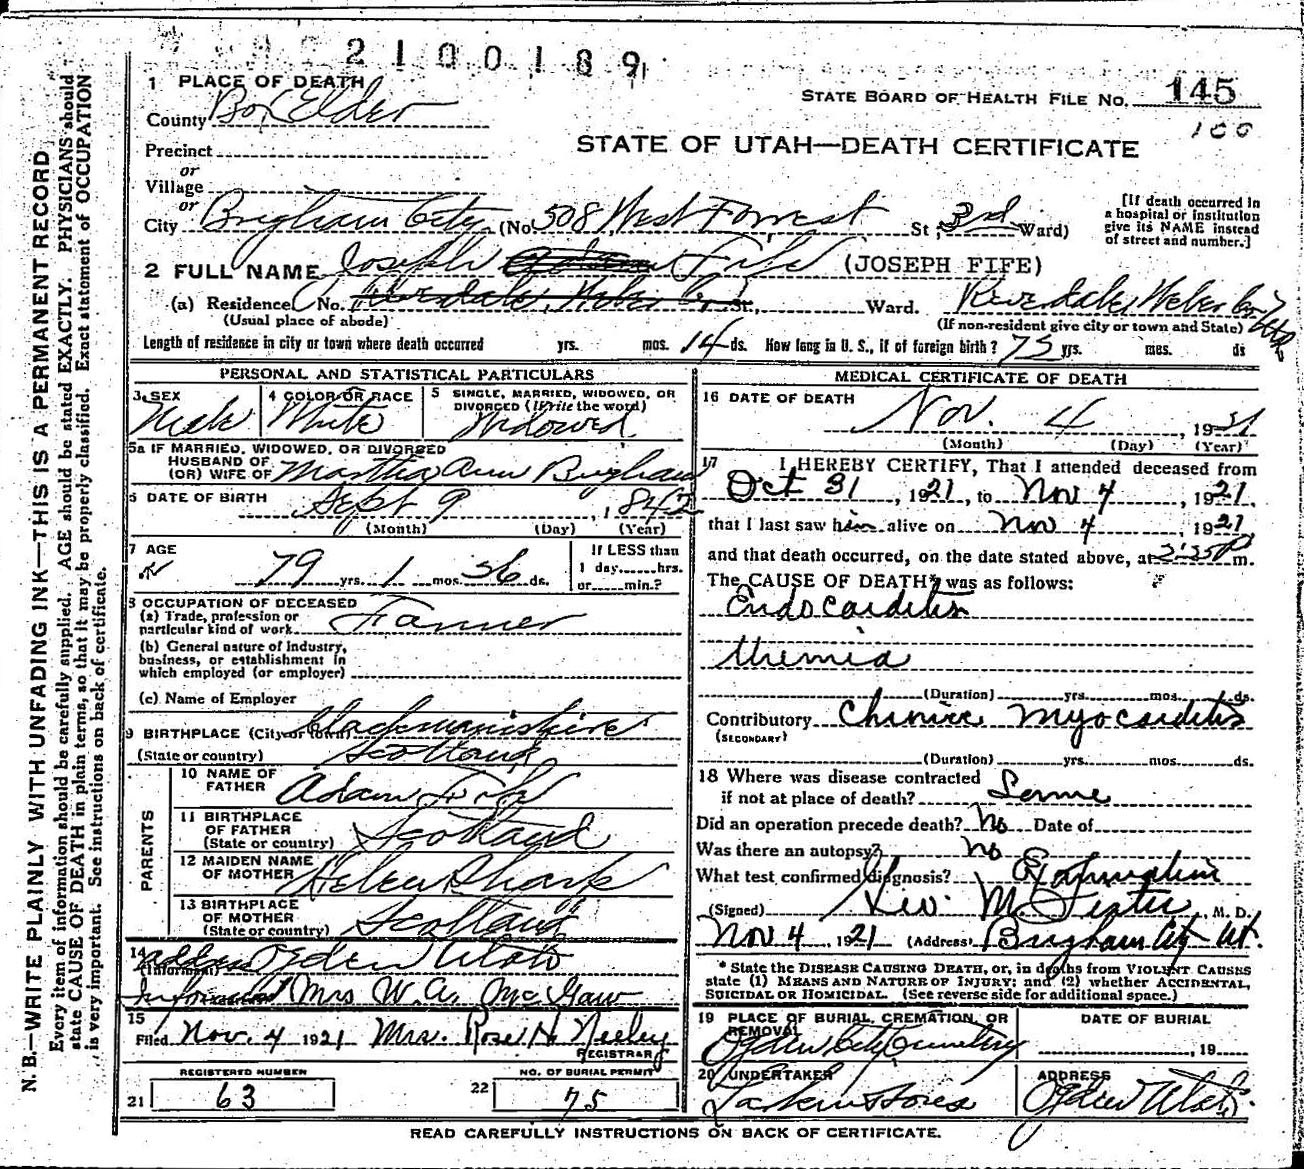 2100189
1 PLACE OF DEATH
STATE BOARD OF HEALTH FILE NO. 145
100
County Box Elder
STATE OF UTAH—DEATH CERTIFICATE
Precinct
or
Village
or
City Brigham City (No. 508 West Forrest St.; 3rd Ward)
[If death occurred in a hospital or institution give its NAME instead of street and number.]
2 FULL NAME Joseph Fife (JOSEPH FIFE)
(a) Residence No. Riverdale, Weber Co. St., Ward. Riverdale Weber Co. Utah
(Usual place of abode)
(If non-resident give city or town and State)
Length of residence in city or town where death occurred yrs. mos. 14 ds. How long in U. S., if of foreign birth? 75 yrs. mos. ds
PERSONAL AND STATISTICAL PARTICULARS
3 SEX Male
4 COLOR OR RACE White
5 SINGLE, MARRIED, WIDOWED, OR DIVORCED (Write the word) Widowed
5a IF MARRIED, WIDOWED, OR DIVORCED
HUSBAND OF
(OR) WIFE OF Martha Ann Bingham
6 DATE OF BIRTH Sept 9, 1842
(Month) (Day) (Year)
7 AGE 79 yrs. 1 mos. 26 ds.
If LESS than
1 day......hrs.
or......min.?
8 OCCUPATION OF DECEASED
(a) Trade, profession or
particular kind of work Farmer
(b) General nature of industry,
business, or establishment in
which employed (or employer)
(c) Name of Employer
9 BIRTHPLACE (City or town) Clackmannshire
(State or country) Scotland
PARENTS
10 NAME OF FATHER Adam Fife
11 BIRTHPLACE OF FATHER (State or country) Scotland
12 MAIDEN NAME OF MOTHER Helen Sharp
13 BIRTHPLACE OF MOTHER (State or country) Scotland
14 address Ogden Utah
(Informant)
Informant Mrs W. A. McGaw
15
Filed Nov. 4 1921 Mrs. Rose H Neeley
REGISTRAR
REGISTERED NUMBER
21 63
NO. OF BURIAL PERMIT
22 75
MEDICAL CERTIFICATE OF DEATH
16 DATE OF DEATH Nov. 4, 1921
(Month) (Day) (Year)
17 I HEREBY CERTIFY, That I attended deceased from
Oct 31, 1921, to Nov 4, 1921
that I last saw him alive on Nov 4 1921
and that death occurred, on the date stated above, at m.
The CAUSE OF DEATH* was as follows:
Endocarditis
Uremia
(Duration) yrs. mos. ds.
Contributory Chronic Myocarditis
(SECONDARY)
(Duration) yrs. mos. ds.
18 Where was disease contracted
if not at place of death? Same
Did an operation precede death? No Date of
Was there an autopsy? No
What test confirmed diagnosis? Examination
(Signed) M. D.
Nov 4, 1921 (Address) Brigham City Ut.
* State the DISEASE CAUSING DEATH, or, in deaths from VIOLENT CAUSES
state (1) MEANS AND NATURE OF INJURY; and (2) whether ACCIDENTAL,
SUICIDAL OR HOMICIDAL. (See reverse side for additional space.)
19 PLACE OF BURIAL, CREMATION, OR REMOVAL
Ogden City Cemetery
DATE OF BURIAL
, 19
20 UNDERTAKER
Larkin & Sons
ADDRESS
Ogden Utah.
READ CAREFULLY INSTRUCTIONS ON BACK OF CERTIFICATE.
N. B.—WRITE PLAINLY WITH UNFADING INK—THIS IS A PERMANENT RECORD
Every item of information should be carefully supplied. AGE should be stated EXACTLY. PHYSICIANS should
state CAUSE OF DEATH in plain terms, so that it may be properly classified. Exact statement of OCCUPATION
is very important. See instructions on back of certificate.